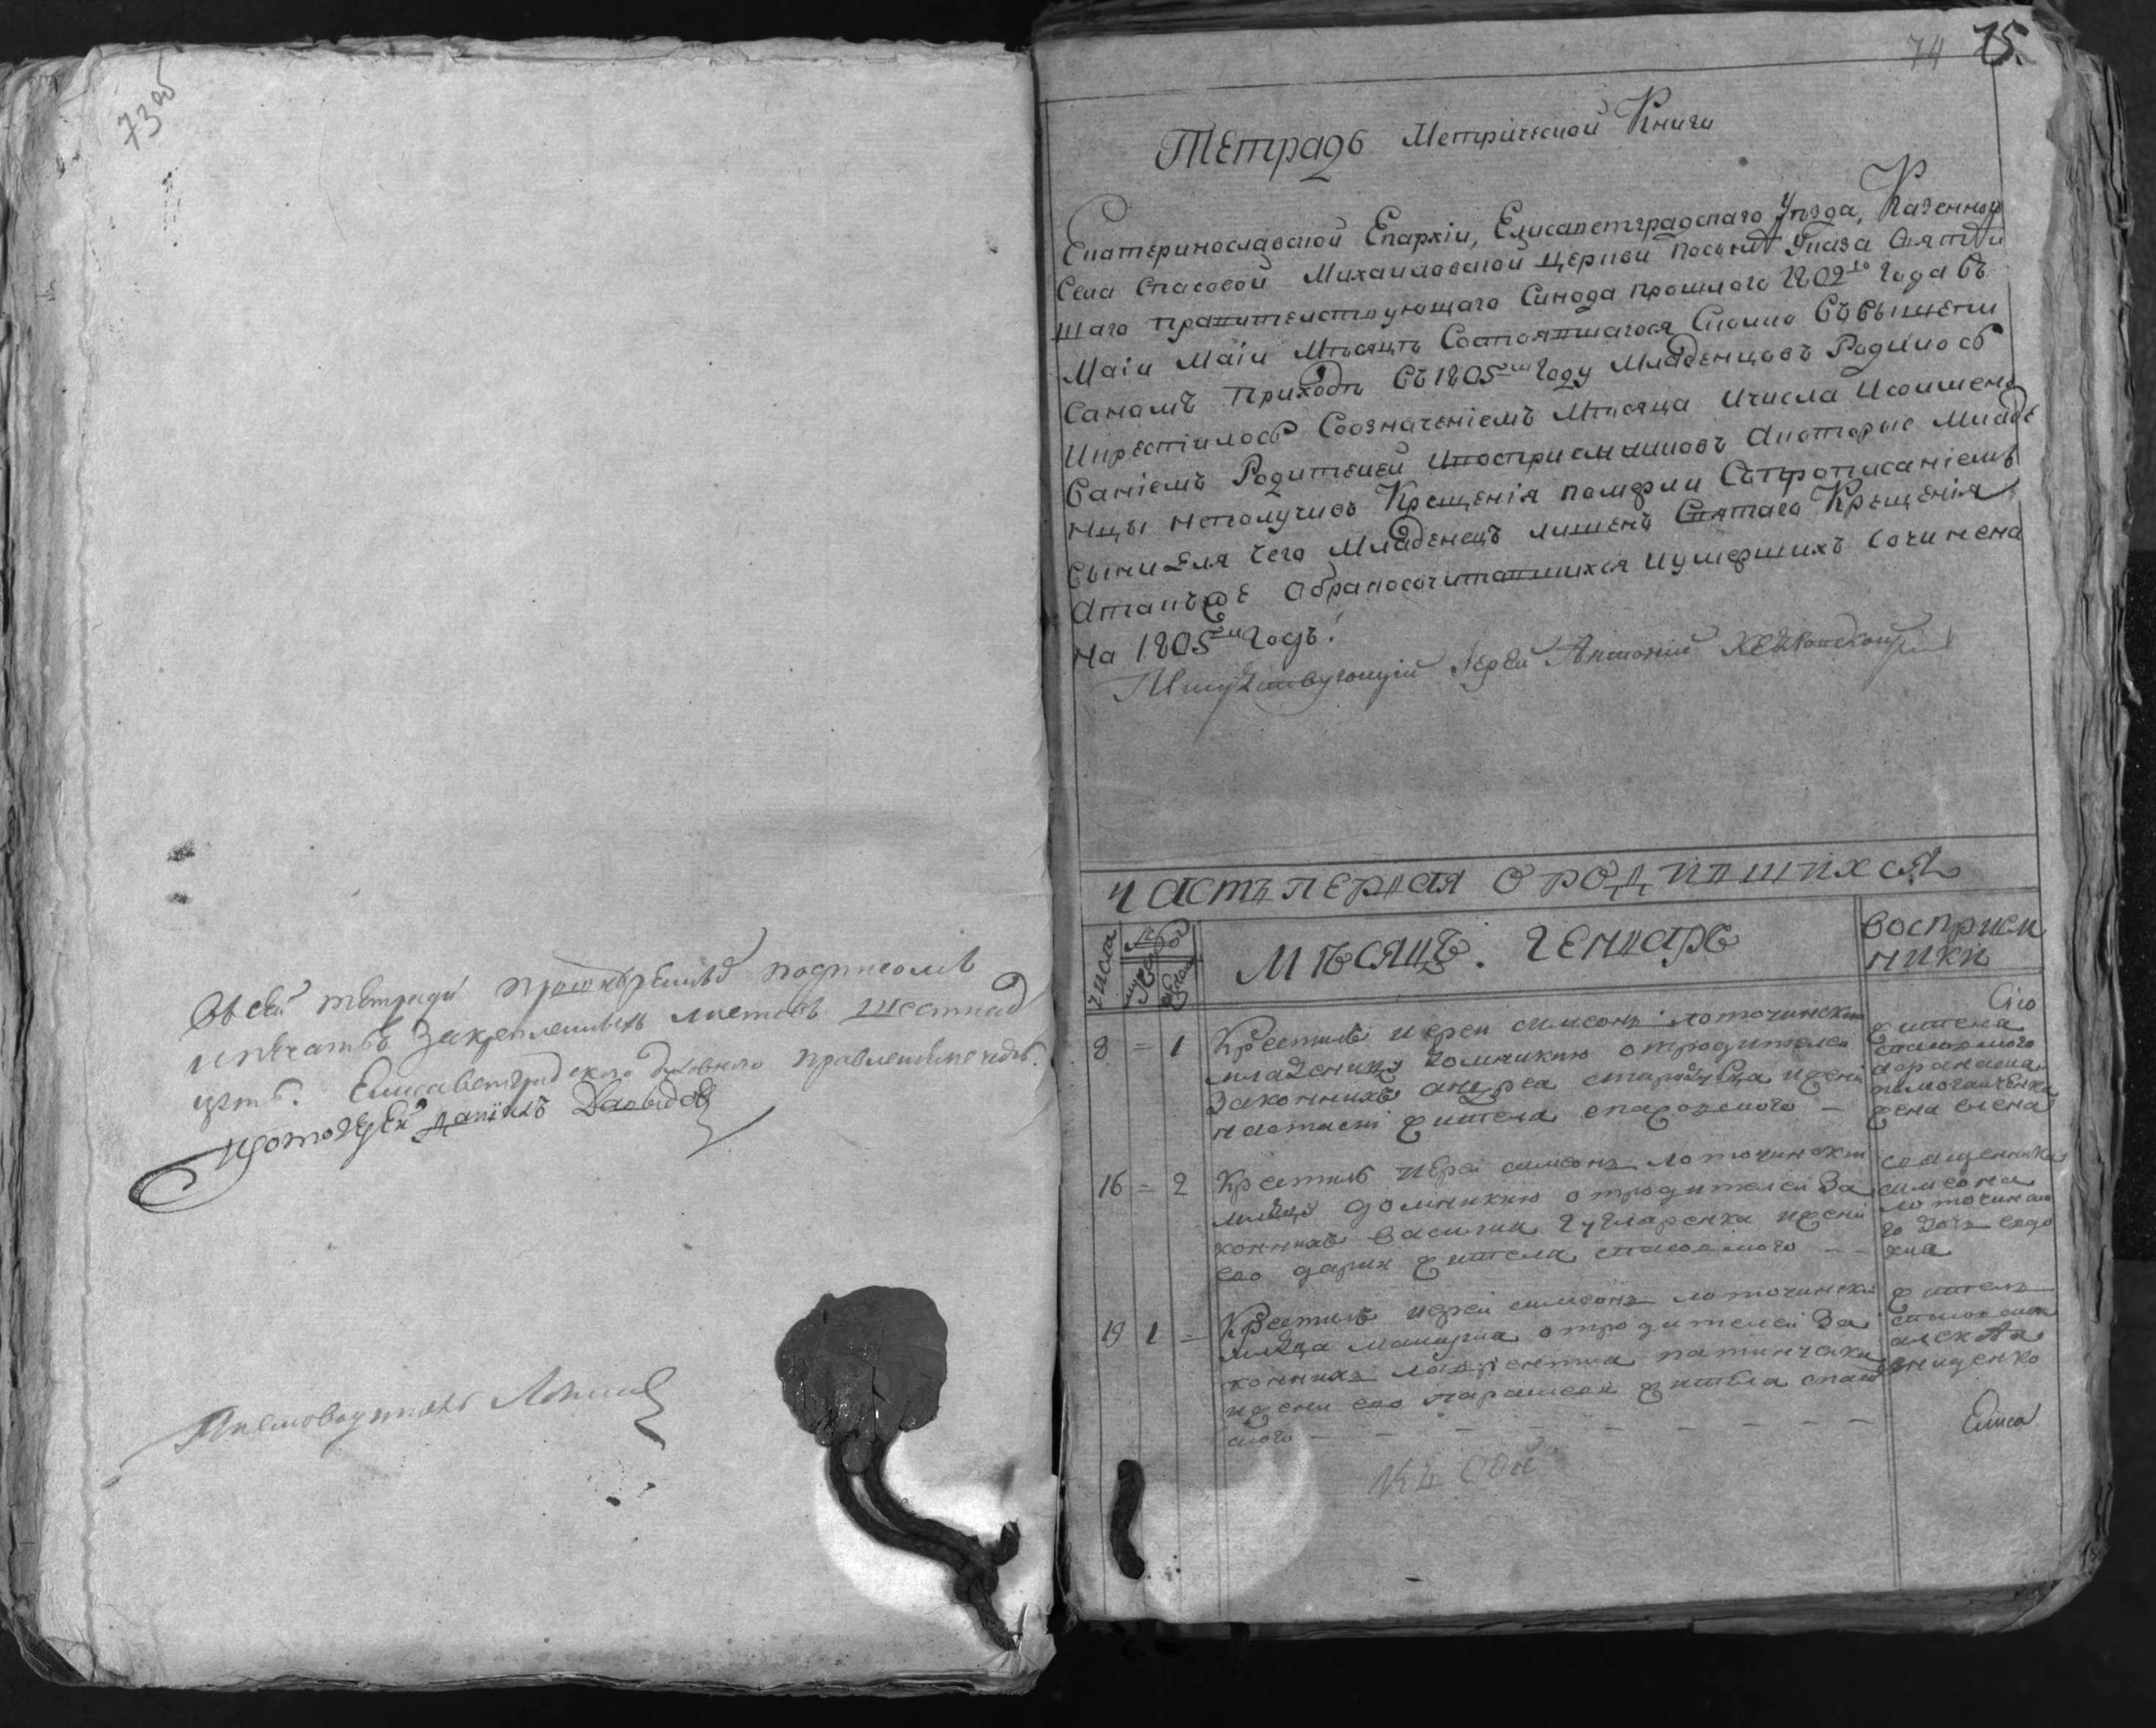 73 об
Въ сей тетради прошнуренныхъ подписомъ
и печатью закрепленныхъ листовъ шестнад
цать. Елисаветградского духовного правления членъ
протоіерей Даніилъ Давидов
Писмоводитель
74 75.
Тетрадь Метрической Книги
Екатеринославской Епархіи, Елисаветградскаго Уѣзда, Казенно
Села Спасовой Михаиловской Церкви Указа Святѣй
шаго правителствующаго Синода прошлаго 1802го Года Въ
Маіи Маіи Мѣсяцѣ Состоявшагося Сколко
Саномъ Приходѣ Въ 1805м Году Младенцовъ Родилось
Икрестилось Соозначеніемъ Мѣсяца Ичисла Исоимено
Ваніемъ Родителей Ивосприемниковъ Акоторые Младе
нцы неполучивъ Крещенія померли Съпрописаніемъ
Вины Для Чего Младенецъ лишенъ Святаго Крещенія
Атакъже Обракосочитавшихся Иумершихъ Сочинена
На 1805й Годъ.
Іерей Антоній
Часть первая о родившихся
числа
Мѣсяцъ. Генварь
восприем
ники
8 = 1 Крестилъ иерей симеонъ лоточински
младеницу домникию отродителей
законнихъ андреа и жени
настасіи жителя спасовского —
Сло
жителя
спасовского
афанасиа
жена елена
16 = 2 Крестилъ иерей симеонъ лоточински
млцу домникию отродителей за
коннихъ василиа и жени
его дарии жителя спасовского — —
священника
симеона
лоточинско
го дочь евдо
киа
19 1 = Крестилъ иерей симеонъ лоточински
млца макариа отродителей за
коннихъ лаврентиа
и жени его параскеви жителя спасов
ского — — — — — — —
житель
спасовски
алекса
Елиса